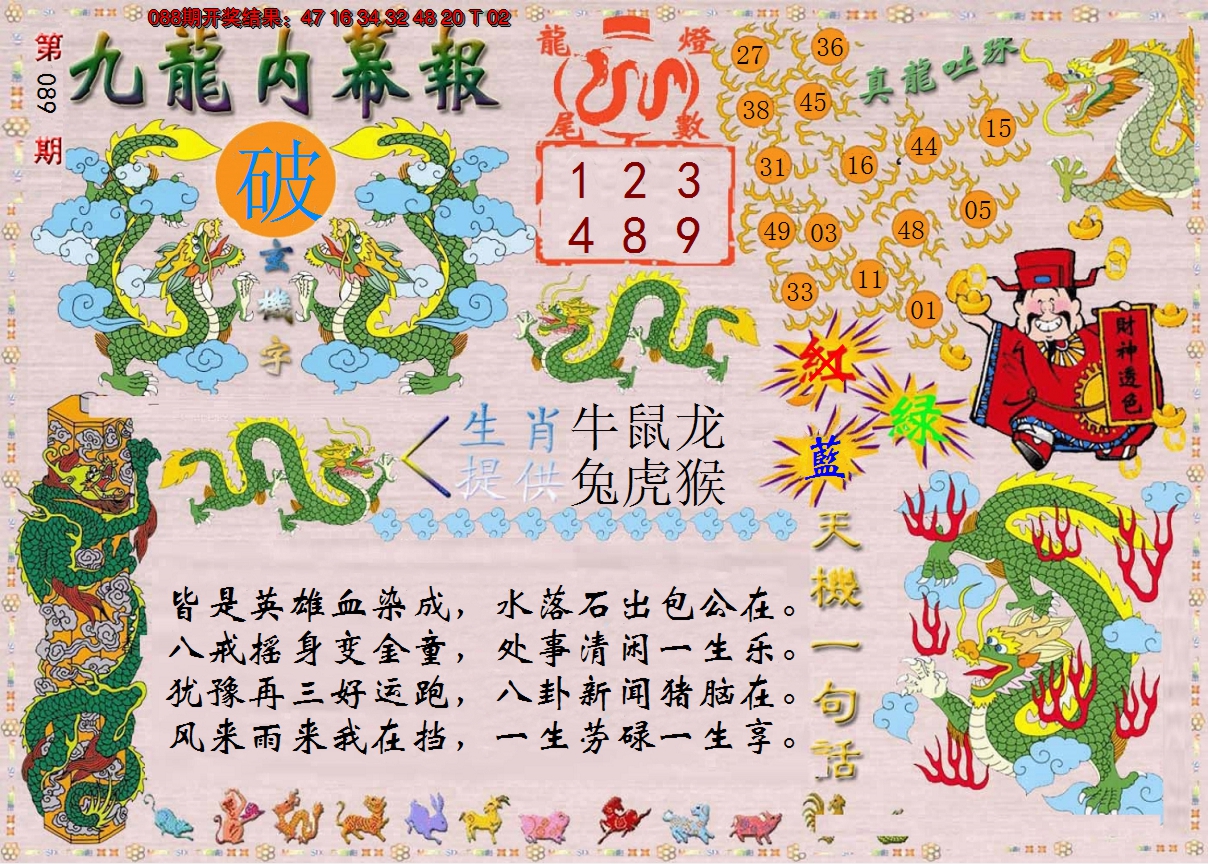 088期开奖结果：47 16 34 32 48 20 T 02
第089期
九龍内幕報
破
玄機字
龍燈尾數
1 2 3
4 8 9
真龍吐珠
27 36
38 45
44 15
31 16
05
49 03 48
11
33 01
財神透色
紅
綠
藍
生肖提供
牛鼠龙
兔虎猴
天機一句話
皆是英雄血染成，水落石出包公在。
八戒摇身变金童，处事清闲一生乐。
犹豫再三好运跑，八卦新闻猪脑在。
风来雨来我在挡，一生劳碌一生享。